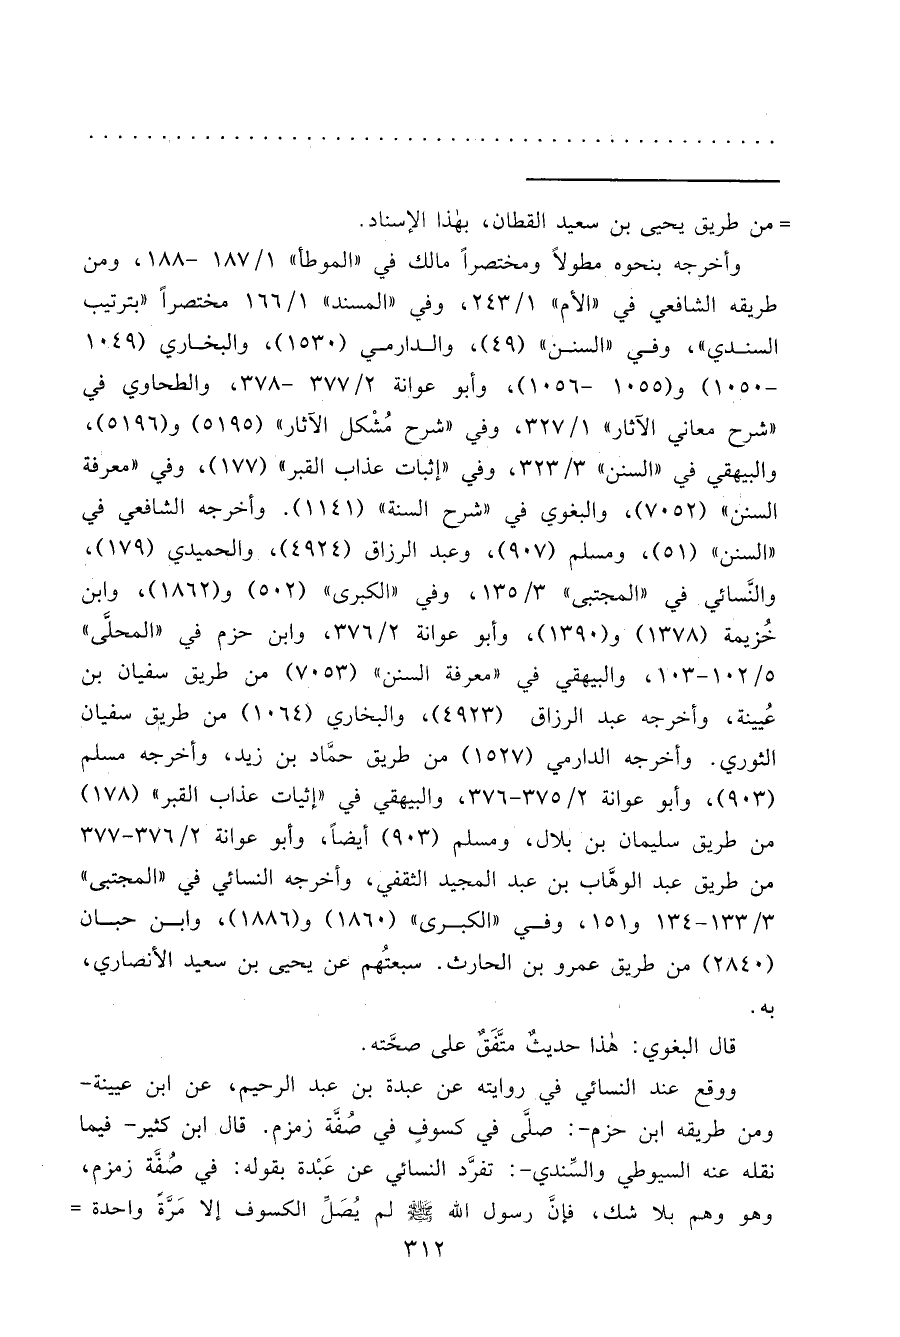 = من طريق يحيى بن سعيد القطان، بهٰذا الإسناد.
وأخرجه بنحوه مطولاً ومختصراً مالك في «الموطأ» ١/ ١٨٧ -١٨٨، ومن
طريقه الشافعي في «الأم» ١/ ٢٤٣، وفي «المسند» ١/ ١٦٦ مختصراً «بترتيب
السندي»، وفي «السنن» (٤٩)، والدارمي (١٥٣٠)، والبخاري (١٠٤٩
-١٠٥٠) و(١٠٥٥ -١٠٥٦)، وأبو عوانة ٢/ ٣٧٧ -٣٧٨، والطحاوي في
«شرح معاني الآثار» ١/ ٣٢٧، وفي «شرح مُشْكل الآثار» (٥١٩٥) و(٥١٩٦)،
والبيهقي في «السنن» ٣/ ٣٢٣، وفي «إثبات عذاب القبر» (١٧٧)، وفي «معرفة
السنن» (٧٠٥٢)، والبغوي في «شرح السنة» (١١٤١). وأخرجه الشافعي في
«السنن» (٥١)، ومسلم (٩٠٧)، وعبد الرزاق (٤٩٢٤)، والحميدي (١٧٩)،
والنَّسائي في «المجتبى» ٣/ ١٣٥، وفي «الكبرى» (٥٠٢) و(١٨٦٢)، وابن
خُزيمة (١٣٧٨) و(١٣٩٠)، وأبو عوانة ٢/ ٣٧٦، وابن حزم في «المحلَّى»
٥/ ١٠٢-١٠٣، والبيهقي في «معرفة السنن» (٧٠٥٣) من طريق سفيان بن
عُيينة، وأخرجه عبد الرزاق (٤٩٢٣)، والبخاري (١٠٦٤) من طريق سفيان
الثوري. وأخرجه الدارمي (١٥٢٧) من طريق حمَّاد بن زيد، وأخرجه مسلم
(٩٠٣)، وأبو عوانة ٢/ ٣٧٥-٣٧٦، والبيهقي في «إثبات عذاب القبر» (١٧٨)
من طريق سليمان بن بلال، ومسلم (٩٠٣) أيضاً، وأبو عوانة ٢/ ٣٧٦-٣٧٧
من طريق عبد الوهَّاب بن عبد المجيد الثقفي، وأخرجه النسائي في «المجتبى»
٣/ ١٣٣-١٣٤ و١٥١، وفي «الكبرى» (١٨٦٠) و(١٨٨٦)، وابن حبان
(٢٨٤٠) من طريق عمرو بن الحارث. سبعتُهم عن يحيى بن سعيد الأنصاري،
به.
قال البغوي: هٰذا حديثٌ متَّفَقٌ على صحَّته.
ووقع عند النسائي في روايته عن عبدة بن عبد الرحيم، عن ابن عيينة-
ومن طريقه ابن حزم-: صلَّى في كسوفٍ في صُفَّة زمزم. قال ابن كثير- فيما
نقله عنه السيوطي والسِّندي-: تفرَّد النسائي عن عَبْدة بقوله: في صُفَّة زمزم،
وهو وهم بلا شك، فإنَّ رسول الله ﷺ لم يُصَلِّ الكسوف إلا مَرَّةً واحدة =
٣١٢